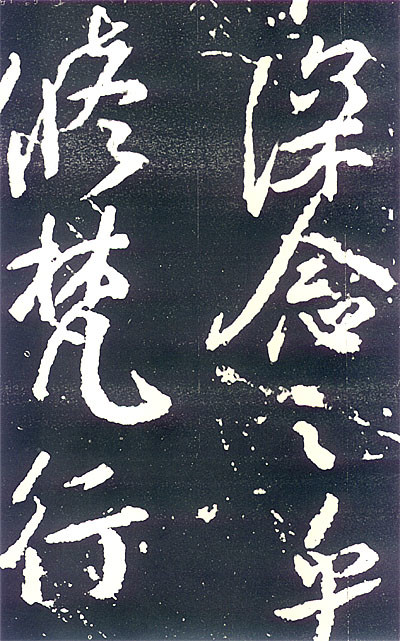 深念之
修梵行